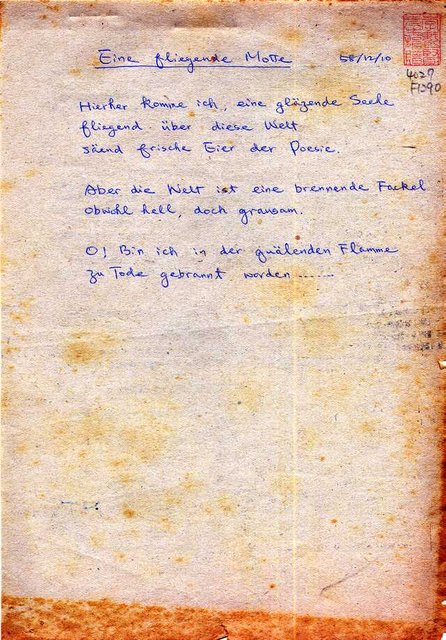 Eine fliegende Motte 58/12/10
4027
F1390
Hierher komme ich, eine gläzende Seele
fliegend über diese Welt
säend frische Eier der Poesie.
Aber die Welt ist eine brennende Fackel
obwohl hell, doch grausam.
O! Bin ich in der quälenden Flamme
zu Tode gebrannt worden ......